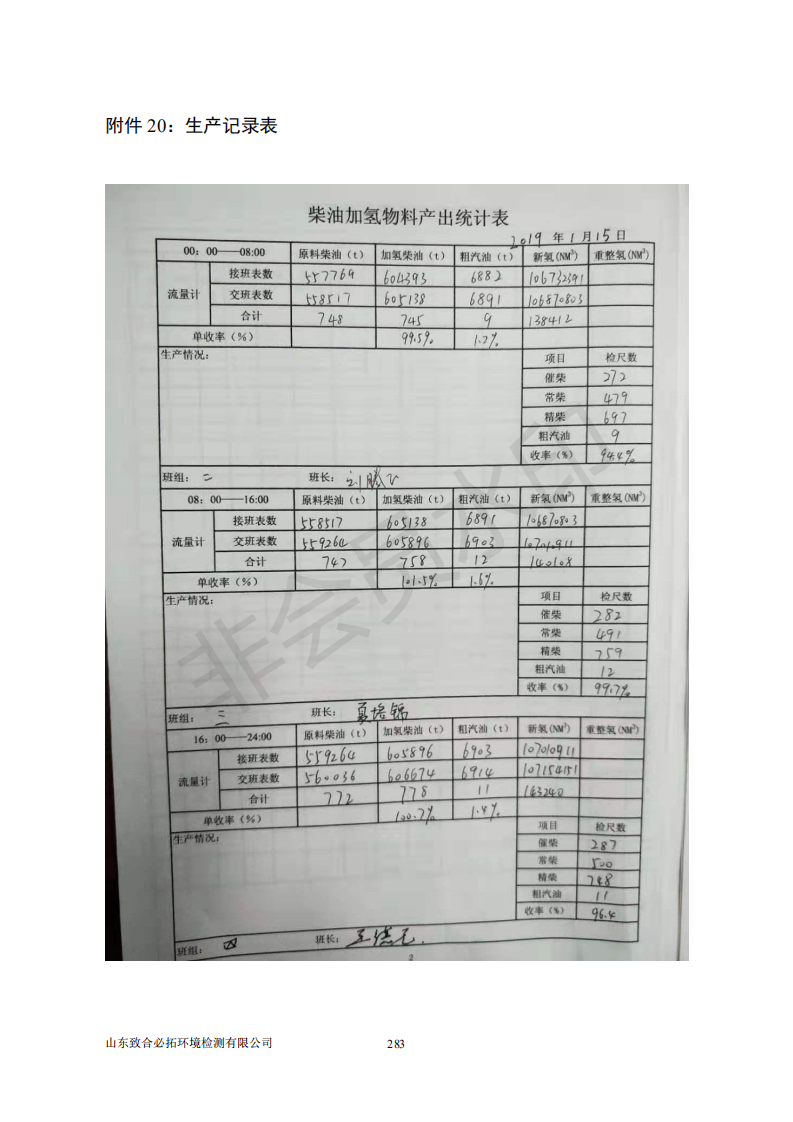 附件 20：生产记录表
柴油加氢物料产出统计表
2019 年 1 月 15 日
00：00——08:00 原料柴油（t） 加氢柴油（t） 粗汽油（t） 新氢(NM³) 重整氢(NM³)
流量计 接班表数 557769 604393 6882 106732391
交班表数 558517 605138 6891 106870803
合计 748 745 9 138412
单收率（%） 99.5% 1.2%
生产情况： 项目 检尺数
催柴 272
常柴 479
精柴 697
粗汽油 9
收率（%） 94.4%
班组： 二 班长：
08：00——16:00 原料柴油（t） 加氢柴油（t） 粗汽油（t） 新氢(NM³) 重整氢(NM³)
流量计 接班表数 558517 605138 6891 106870803
交班表数 559264 605896 6903 107010911
合计 747 758 12 140108
单收率（%） 101.5% 1.6%
生产情况： 项目 检尺数
催柴 282
常柴 491
精柴 759
粗汽油 12
收率（%） 99.7%
班组： 三 班长： 夏培锦
16：00——24:00 原料柴油（t） 加氢柴油（t） 粗汽油（t） 新氢(NM³) 重整氢(NM³)
流量计 接班表数 559264 605896 6903 107010911
交班表数 560036 606674 6914 107154151
合计 772 778 11 143240
单收率（%） 100.7% 1.4%
生产情况： 项目 检尺数
催柴 287
常柴 500
精柴 748
粗汽油 11
收率（%） 96.4
班组： 四 班长：
2
非会员水印
山东致合必拓环境检测有限公司 283